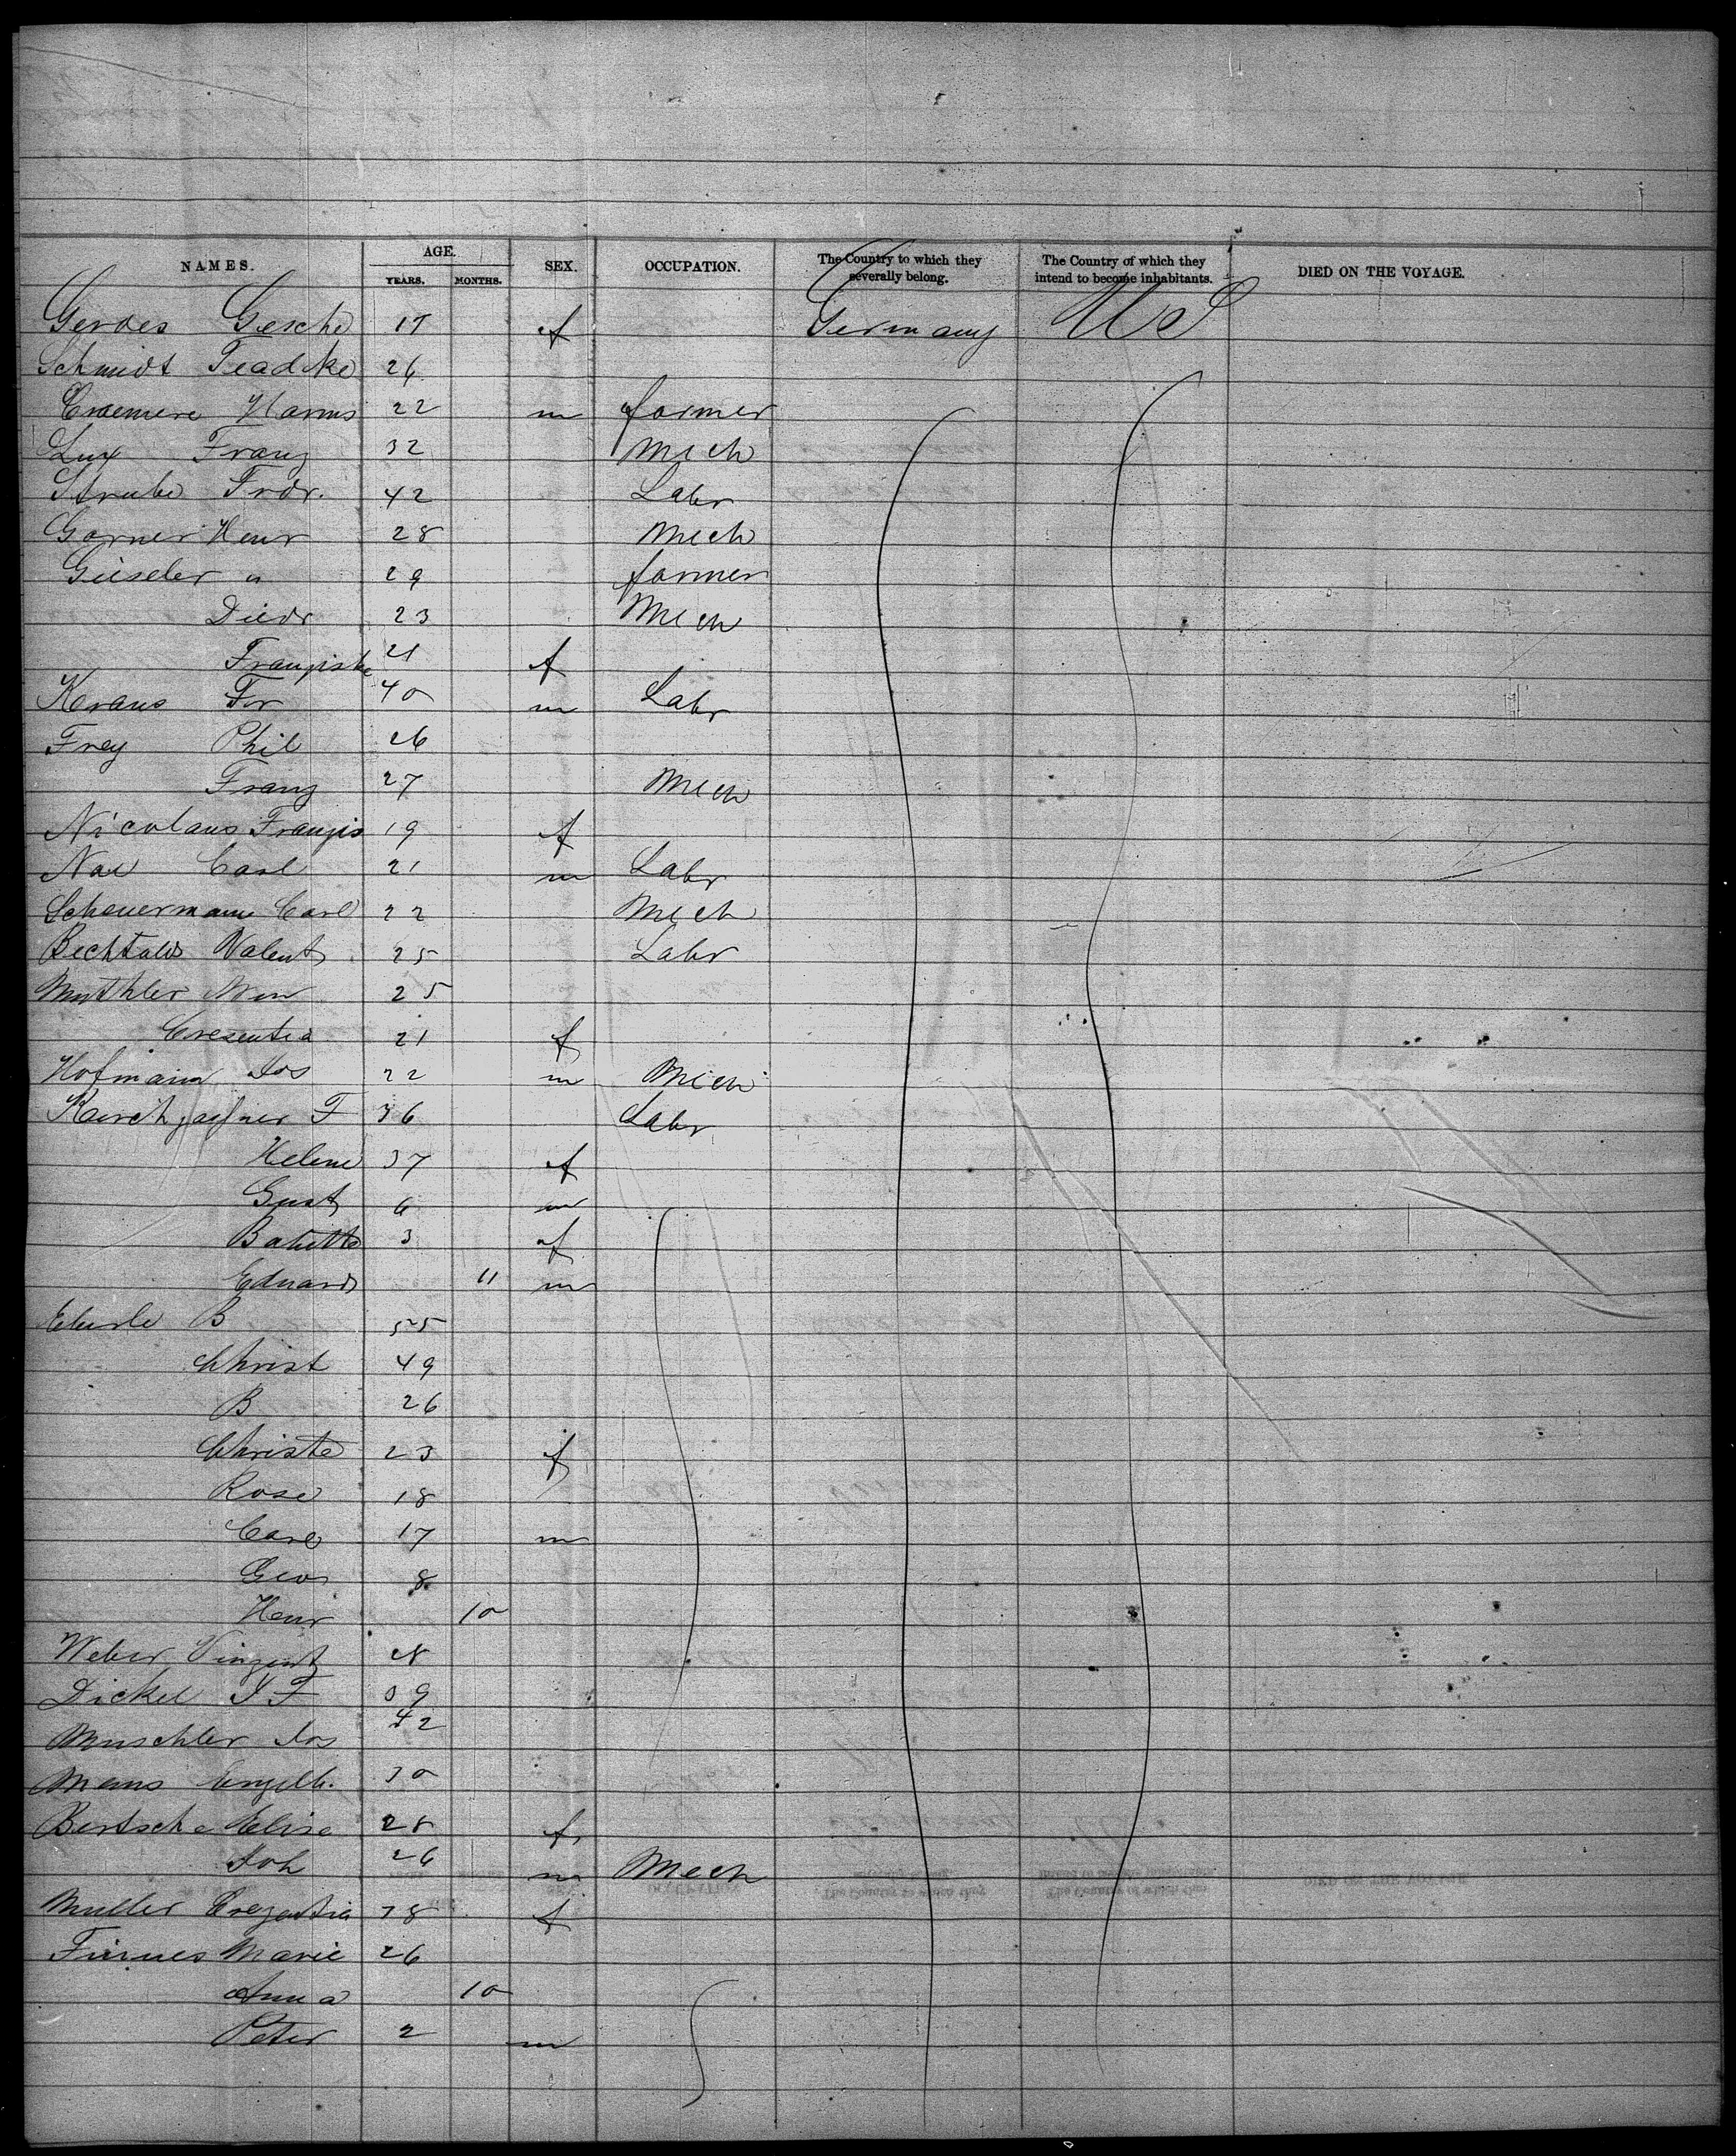 NAMES. AGE. SEX. OCCUPATION. The Country to which they severally belong. The Country of which they intend to become inhabitants. DIED ON THE VOYAGE.
YEARS. MONTHS.
Gerdes Gesche 17 f Germany US
Schmidt 26
Harms 22 m farmer
Lux Franz 32 Mech
Strube Frdr. 42 Labr
Garner Henr 28 Mech
Gieseler " 29 farmer
Diedr 23 Mech
Franziska 21 f
Kraus Fr 40 m Labr
Frey Phil 26
Franz 27 Mech
Nicolaus Franzis 19 f
Carl 21 m Labr
Scheuermann Carl 22 Mech
Bechtold Valent 25 Labr
25
Cresentia 21 f
Hofmann Jos 22 m Mech
F 36 Labr
Helene 37 f
Gust 6 m
Babette 3 f
Eduard 11 m
Eberle B 55
Christ 49
B 26
Christe 23 f
Rose 18
Carl 17 m
Geo 8
Henr 10
Weber Vinzent
Dickel J F 39
Muschler Jos 42
30
Bertsche Elise 28 f
Joh 26 m Mech
Muller Crezentia 38 f
Marie 26
Anna 10
Peter 2 m